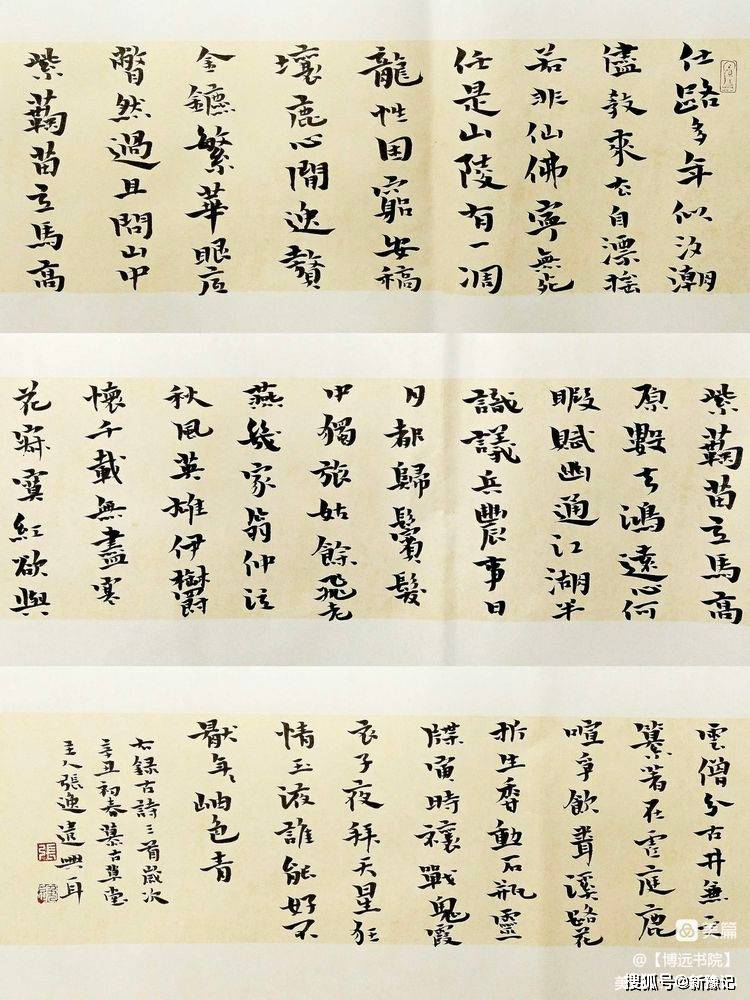 仕路多年似汐潮
儘教乘去自漂搖
若非仙佛寧無死
任是山陵有一凋
龍性困窮安槁
壤鹿心閒逸贅
金鑣繁華眼底
瞥然過且問山中
紫蘜苗立馬高
紫蘜苗立馬高
原數去鴻遠心何
暇賦幽通江湖半
識議兵農事日
月都歸鬢髮
中獨旅姑餘飛老
燕幾家翁仲泣
秋風英雄伊鬱
懷千載無盡寒
花寂寞紅欲與
雲僧分古井無文
籙著在虛庭鹿
喧爭飲聾溪路花
折生香動石瓶靈
牒寅時禳戰鬼霞
衣子夜拜天星狂
情玉液誰能好不
厭年年岫色青
右錄古詩三首歲次
辛丑初春慕古草堂
主人張逸遣興耳
張
美篇
@【博远书院】
搜狐号@新豫记